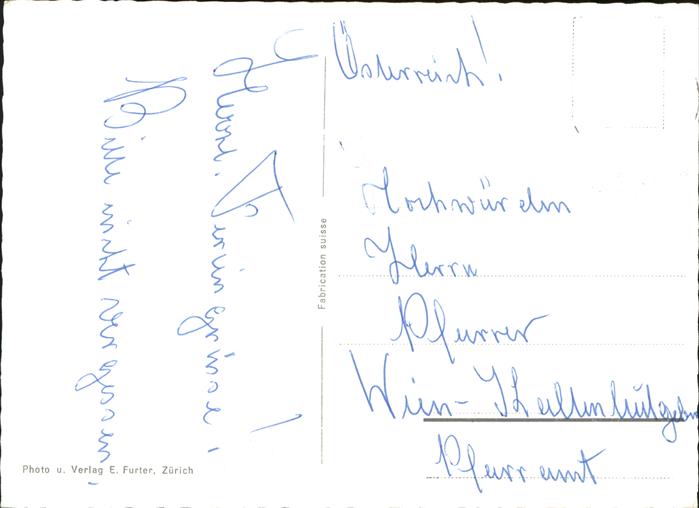 Herzl. Feriengrüsse!
Bitte nicht vergessen!
Photo u. Verlag E. Furter, Zürich
Fabrication suisse
Österreich!
Hochwürden
Herrn
Pfarrer
Wien-
Pfarramt